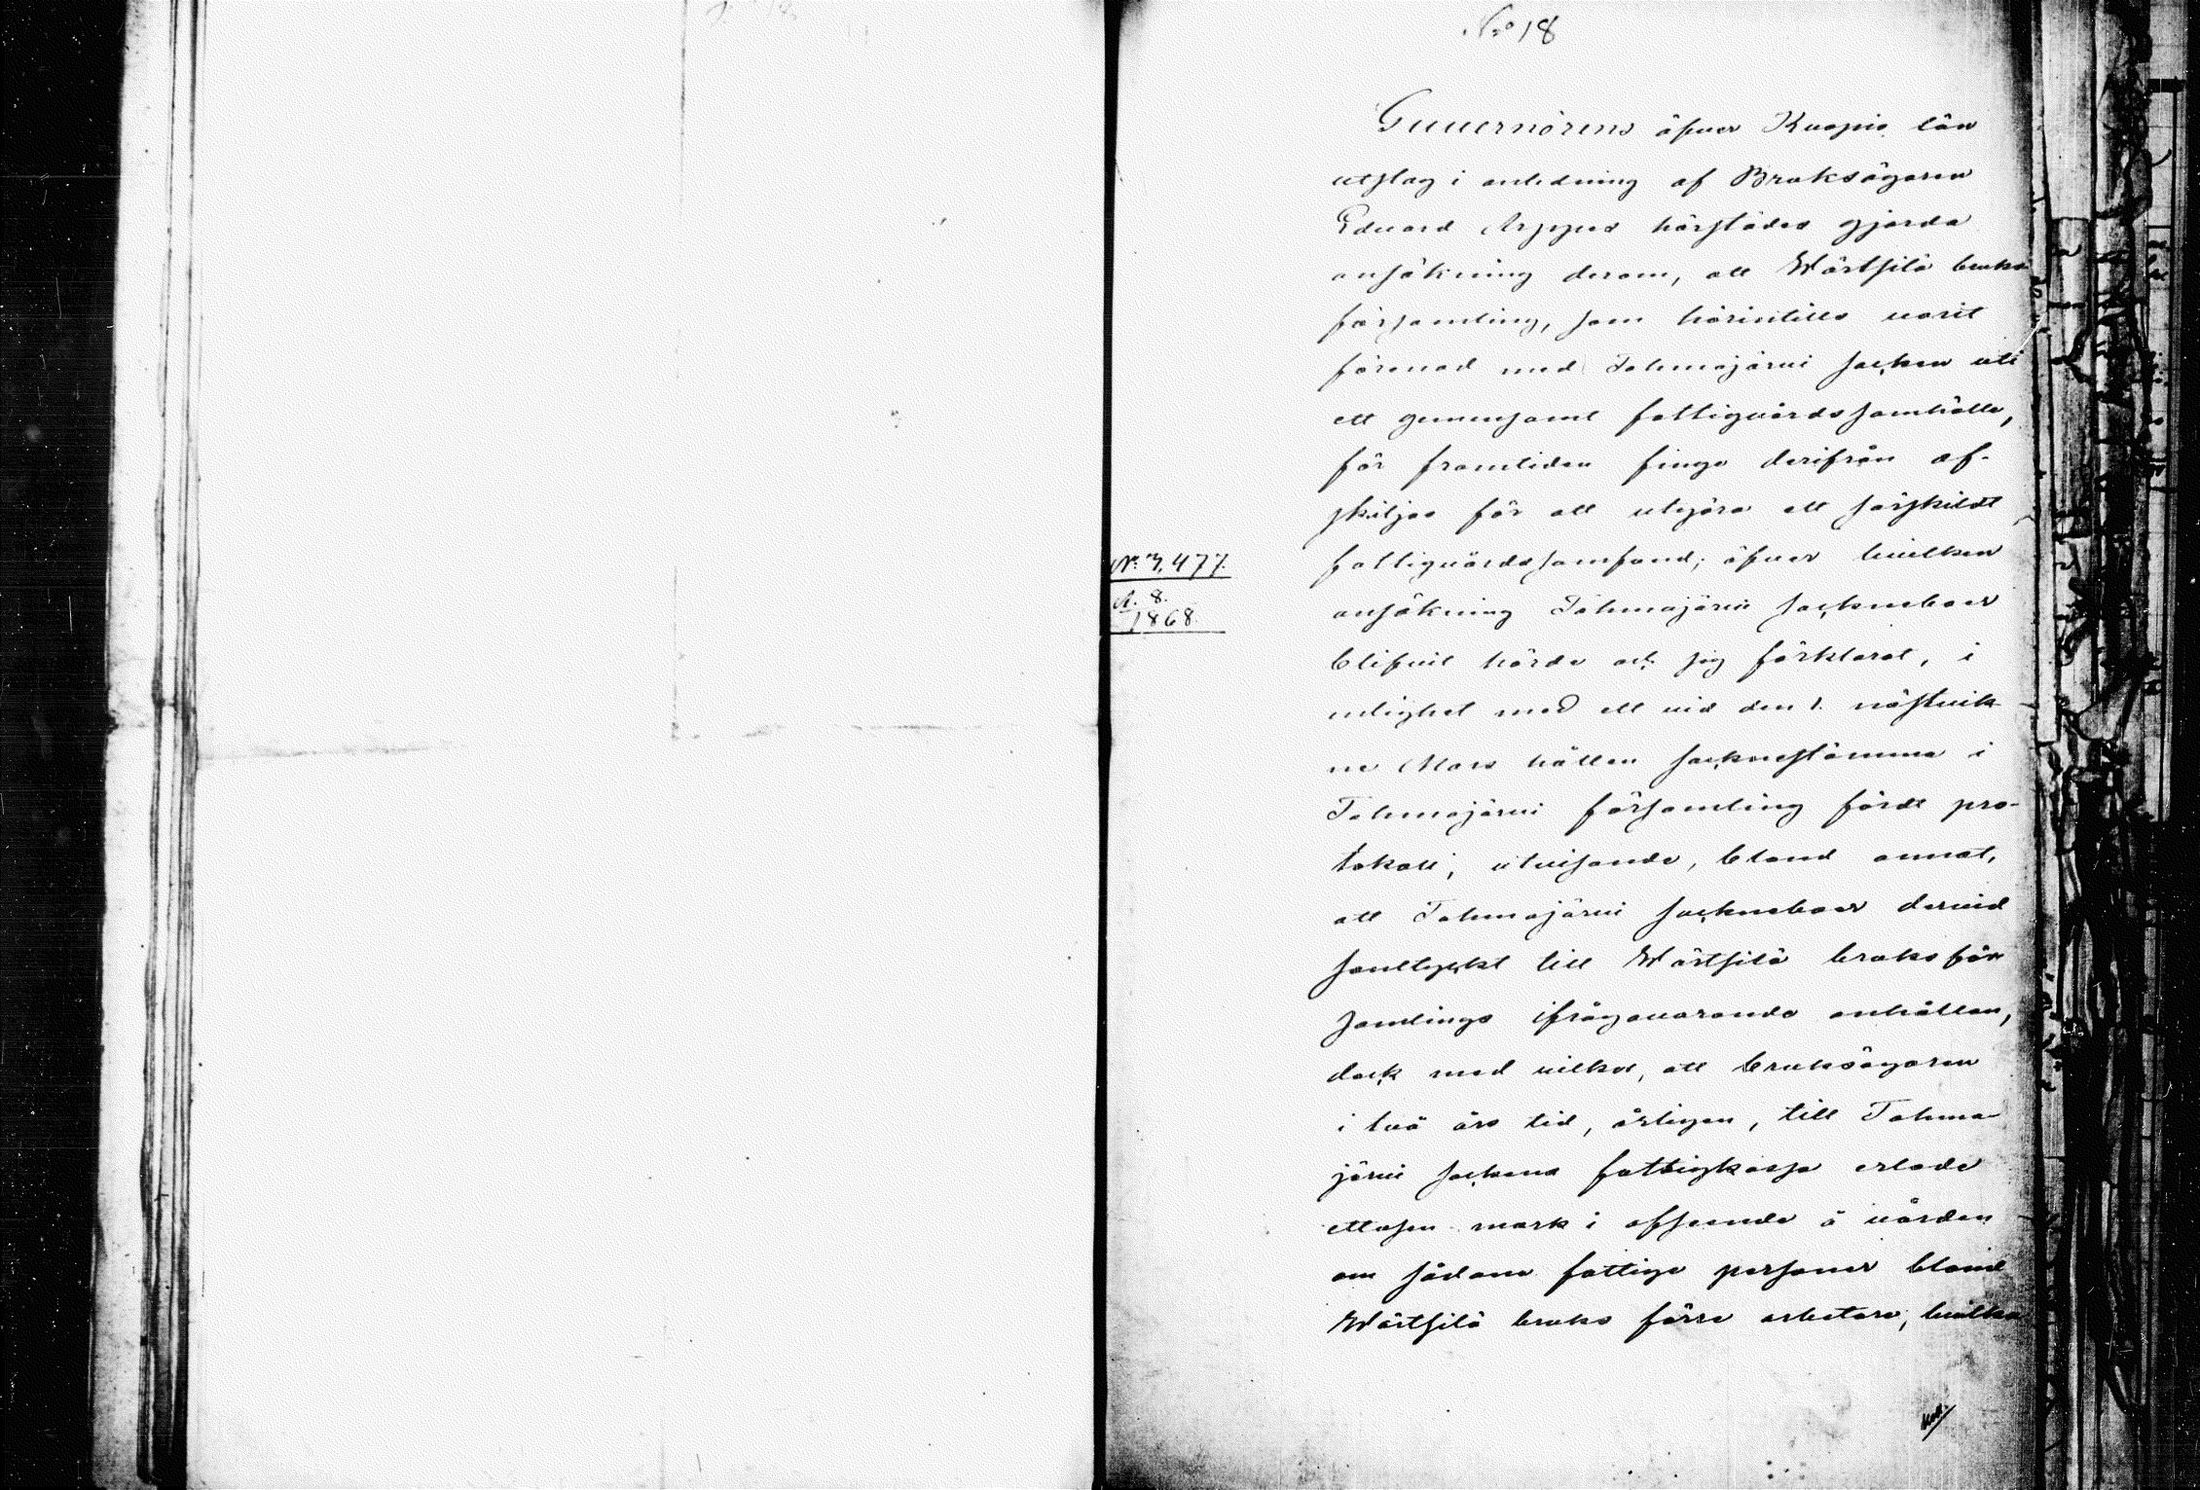 No 18
Guvernörens öfver Kuopio län
utslag i anledning af Bruksägaren
Edvard Arppes härstädes gjorda
ansökning derom, att Wärtsilä bruks
församling, som härintills varit
förenad med Tohmajärvi socken uti
ett gemensamt fattigvårdssamhälle,
för framtiden finge derifrån af-
skiljas för att utgöra ett särskildt
fattigvårdssamfund; öfver hvilken
ansökning Tohmajärvi sockneboer
blifvit hörde och sig förklarat, i
enlighet med ett vid den 1. nästvik-
ne Mars hållen sockenstämma i
Tohmajärvi församling fördt pro-
tokoll, utvisande, bland annat,
att Tohmajärvi sockneboer dervid
samtyckt till Wärtsilä bruksför
samlings ifrågavarande anhållan,
dock med vilkor, att bruksägaren
i två års tid, årligen, till Tohma
järvi sockens fattigkassa erlade
ettusen mark i afseende å vården
om sådane fattige personer bland
Wärtsilä bruks förre arbetare, hvilka
No: 3,477.
A. 8.
1868.